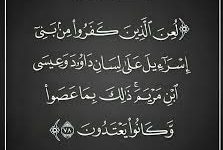 ﴿لُعِنَ ٱلَّذِينَ كَفَرُوا۟ مِنۢ بَنِىٓ
إِسْرَٰٓءِيلَ عَلَىٰ لِسَانِ دَاوُۥدَ وَعِيسَى
ٱبْنِ مَرْيَمَ ۚ ذَٰلِكَ بِمَا عَصَوا۟
وَّكَانُوا۟ يَعْتَدُونَ ﴿٧٨﴾